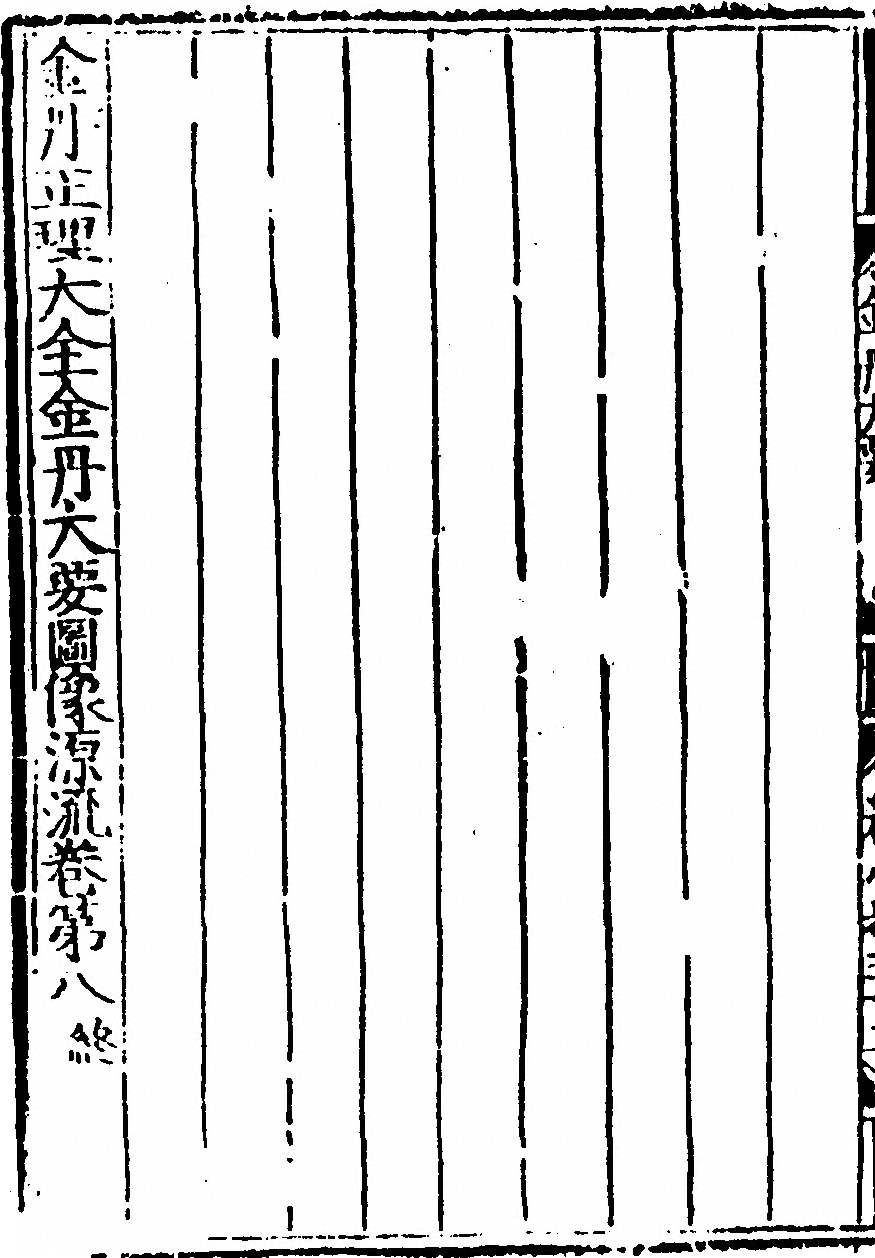 金丹正理大全金丹大要圖像源流卷第八終